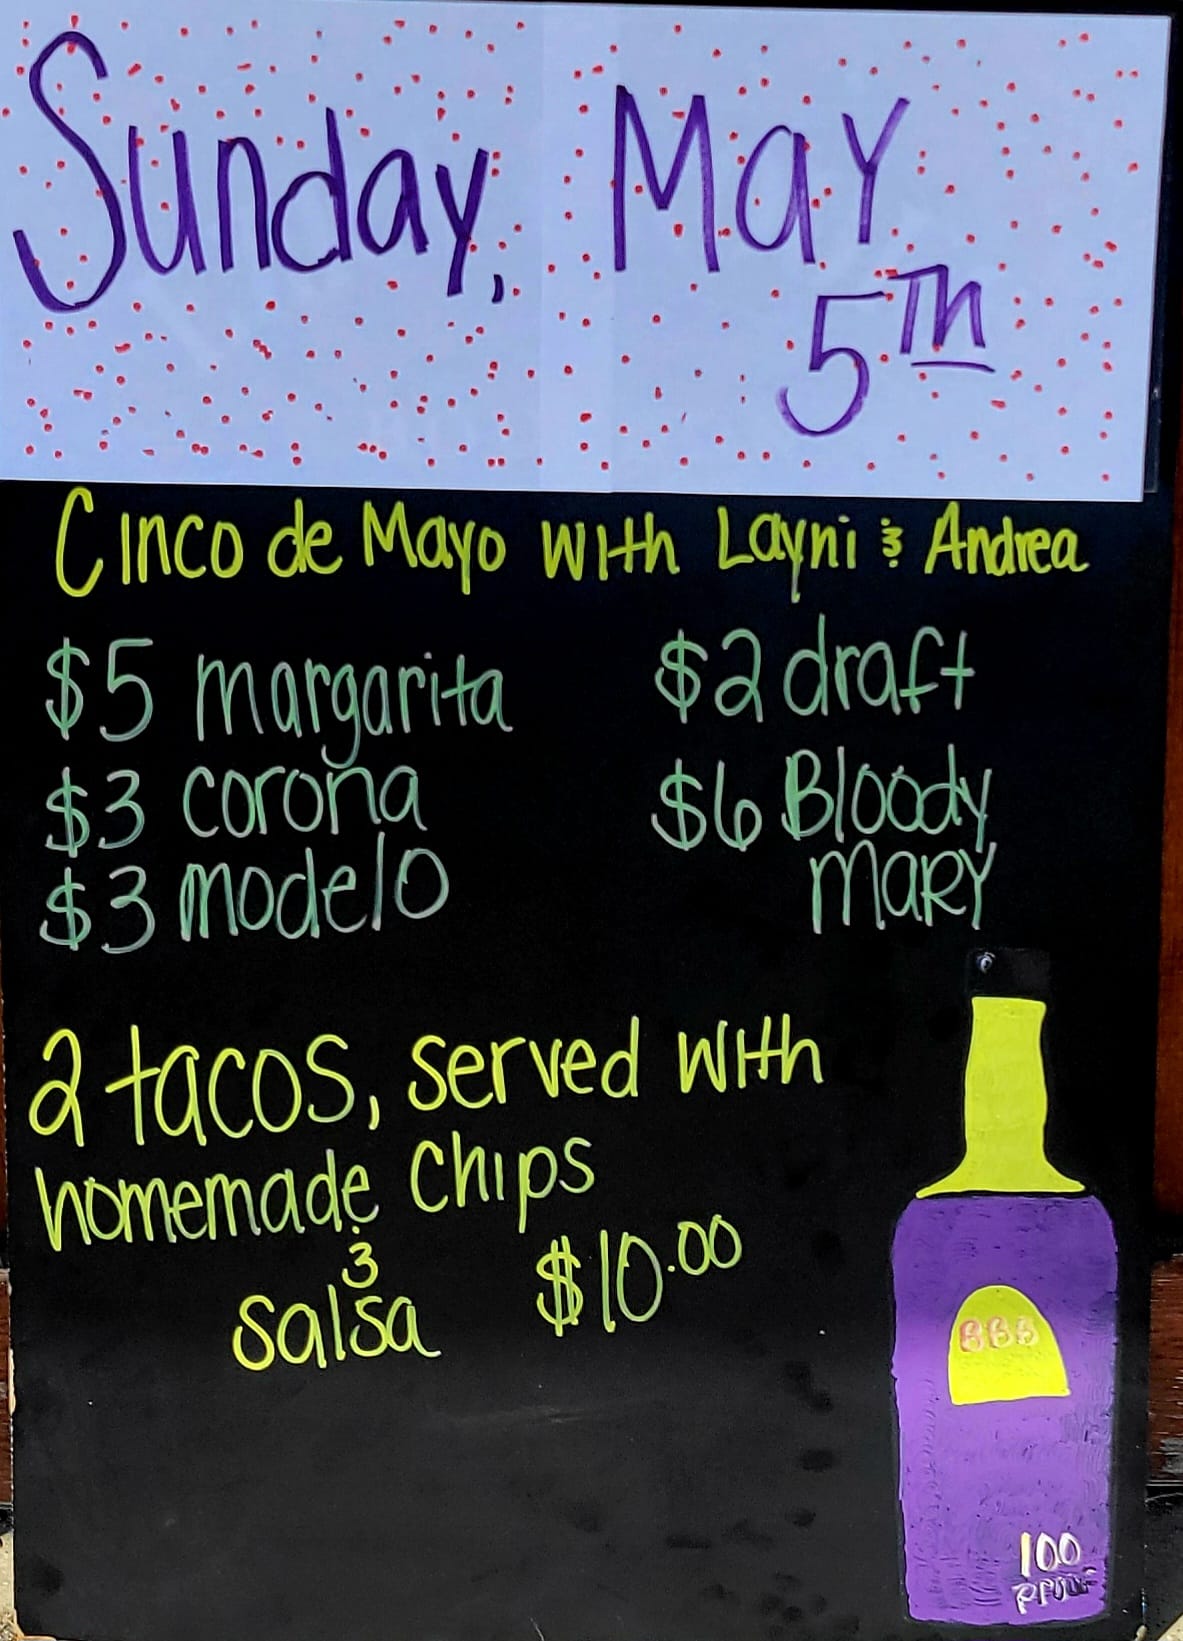 Sunday, May
5TH
Cinco de Mayo with Layni & Andrea
$5 margarita
$3 corona
$3 modelo
$2 draft
$6 Bloody
MARY
2 tacos, served with
homemade chips
&
salsa $10.00
BBB
100
PROOF